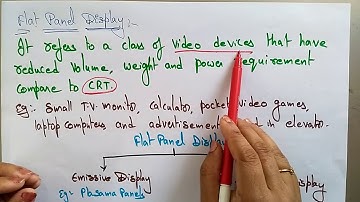 Flat Panel Display:-
It refers to a class of video devices that have
reduced Volume, weight and power requirement
compare to CRT.
Eg:- Small T.V. monitor, calculator, pocket video games,
laptop computers and advertisement in elevator.
Flat Panel Displ
Emissive Display
Display
Eg:- Plasma Panels